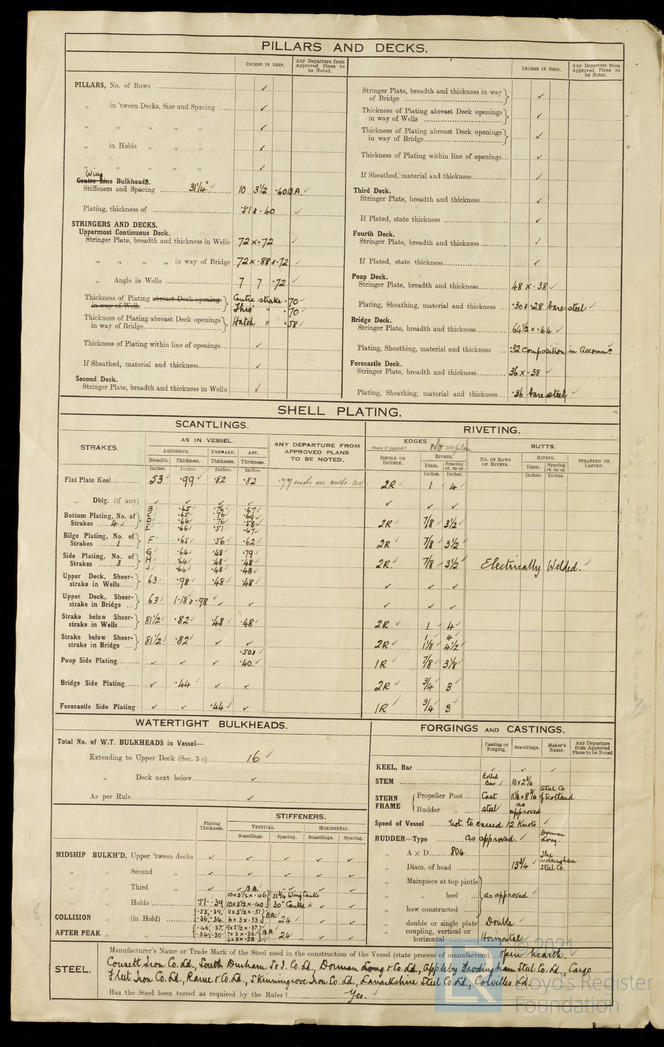 PILLARS AND DECKS.
INCHES IN SHIP.
Any Departure from Approved Plans to be Noted.
PILLARS, No. of Rows ✓
„ in 'tween Decks, Size and Spacing ✓
„ „ „ „ ✓
„ in Holds „ ✓
„ „ „ „ ✓
Wing
Centre Line Bulkheads.
Stiffeners and Spacing 31¼" 10 3½ .40 BA ✓
Plating, thickness of .51 & .40
STRINGERS AND DECKS.
Uppermost Continuous Deck.
Stringer Plate, breadth and thickness in Wells 72 x .72 ✓
„ „ „ „ in way of Bridge 72 x .88 & .72 ✓
„ Angle in Wells 7 7 .72 ✓
Thickness of Plating abreast Deck openings in way of Wells Centre strake .70 ✓
.70 ✓
Thickness of Plating abreast Deck openings in way of Bridge Hatch „ .58 ✓
Thickness of Plating within line of openings ✓
If Sheathed, material and thickness ✓
Second Deck.
Stringer Plate, breadth and thickness in Wells ✓
INCHES IN SHIP.
Any Departure from Approved Plans to be Noted.
Stringer Plate, breadth and thickness in way of Bridge ✓
Thickness of Plating abreast Deck openings in way of Wells ✓
Thickness of Plating abreast Deck openings in way of Bridge ✓
Thickness of Plating within line of openings ✓
If Sheathed, material and thickness ✓
Third Deck.
Stringer Plate, breadth and thickness ✓
If Plated, state thickness ✓
Fourth Deck.
Stringer Plate, breadth and thickness ✓
If Plated, state thickness ✓
Poop Deck.
Stringer Plate, breadth and thickness 48 x .38 ✓
Plating, Sheathing, material and thickness .30 & .28 bare steel ✓
Bridge Deck.
Stringer Plate, breadth and thickness 64½ x .44 ✓
Plating, Sheathing, material and thickness .32 Composition in Accomm
Forecastle Deck.
Stringer Plate, breadth and thickness 36 x .38 ✓
Plating, Sheathing, material and thickness .36 bare steel ✓
SHELL PLATING.
SCANTLINGS.
STRAKES.
AS IN VESSEL.
AMIDSHIPS. FORWARD. AFT.
Breadth. Thickness. Thickness. Thickness.
Inches. Inches. Inches. Inches.
ANY DEPARTURE FROM APPROVED PLANS TO BE NOTED.
RIVETING.
EDGES.
State if joggled?
SINGLE OR DOUBLE.
RIVETS.
Diam. Spacing cr. to cr.
Inches. Inches.
BUTTS.
NO. OF ROWS OF RIVETS.
RIVETS.
Diam. Spacing cr. to cr.
Inches. Inches.
STRAPPED OR LAPPED.
Flat Plate Keel 53 .99 ✓ .82 ✓ .82 2R ✓ 1 4 ✓
„ Dblg. (if any) ✓ ✓ ✓ ✓ ✓ ✓ ✓
Bottom Plating, No. of Strakes 4 2R ✓ 7/8 3½
Bilge Plating, No. of Strakes 1 F .65 .56 .62 2R ✓ 7/8 3½
Side Plating, No. of Strakes 3 G .64 .48 .79
H .64 .48 .48 2R ✓ 7/8 3½ Electrically Welded. ✓
J .64 .48 .48
Upper Deck, Sheer-strake in Wells 63 .98 .48 .48 ✓ ✓ ✓
Upper Deck, Sheer-strake in Bridge 63 1.18 & .98 ✓ ✓ ✓ ✓ ✓
Strake below Sheer-strake in Wells 81½ .82 .48 .48 2R ✓ 1 4
Strake below Sheer-strake in Bridge 81½ .82 ✓ ✓ 2R ✓ 1 1/8 4 4½
Poop Side Plating ✓ ✓ ✓ .50 & .40 1R 7/8 3⅛
Bridge Side Plating ✓ .44 ✓ ✓ ✓ 2R ✓ ¾ 3
Forecastle Side Plating ✓ ✓ .44 ✓ 1R ✓ ¾ 3
WATERTIGHT BULKHEADS.
Total No. of W.T. BULKHEADS in Vessel—
Extending to Upper Deck (Sec. 3 c) 16 ✓
„ Deck next below ✓
As per Rule ✓
STIFFENERS.
Plating Thickness.
VERTICAL. HORIZONTAL.
Scantlings. Spacing. Scantlings. Spacing.
MIDSHIP BULKH'D, Upper 'tween decks ✓ ✓ ✓ ✓ ✓
„ „ Second „ ✓ ✓ ✓ ✓ ✓
„ „ Third „ ✓ BA ✓ ✓ ✓
„ „ Holds .51 - .39 10x3½x.46 31¼ Wing tanks
10x3½x.40 30" Centre „
COLLISION „ (in Hold) BA 24 ✓
6 x 3 x .33
AFTER PEAK „ „ BA 24 ✓
FORGINGS AND CASTINGS.
Casting or Forging. Scantlings. Maker's Name. Any Departure from Approved Plans to be Noted.
KEEL, Bar ✓ ✓ ✓
STEM Rolled Bar 10 x 2¾
STERN FRAME Propeller Post Cast Steel Co of Scotland
Rudder „ steel as approved
Speed of Vessel not to exceed 12 Knots ✓
RUDDER—Type as approved. ✓ Dorman Long.
„ A x D 804
„ Diam. of head 13¾ ✓ The Steel Co.
„ Mainpiece at top pintle
„ „ heel as approved ✓
„ how constructed
„ double or single plate Double ✓
„ coupling, vertical or horizontal Horizontal
STEEL. Manufacturer's Name or Trade Mark of the Steel used in the construction of the Vessel (state process of manufacture) Open hearth.
Consett Iron Co. Ld., South Durham S. & I. Co. Ld., Dorman Long & Co. Ld., Appleby Frodingham Steel Co. Ld., Cargo
Fleet Iron Co. Ld., Raine & Co. Ld., Skinningrove Iron Co. Ld., Lanarkshire Steel Co. Ld., Colvilles Ld.
Has the Steel been tested as required by the Rules? Yes.
© 2021
Lloyd's Register
Foundation